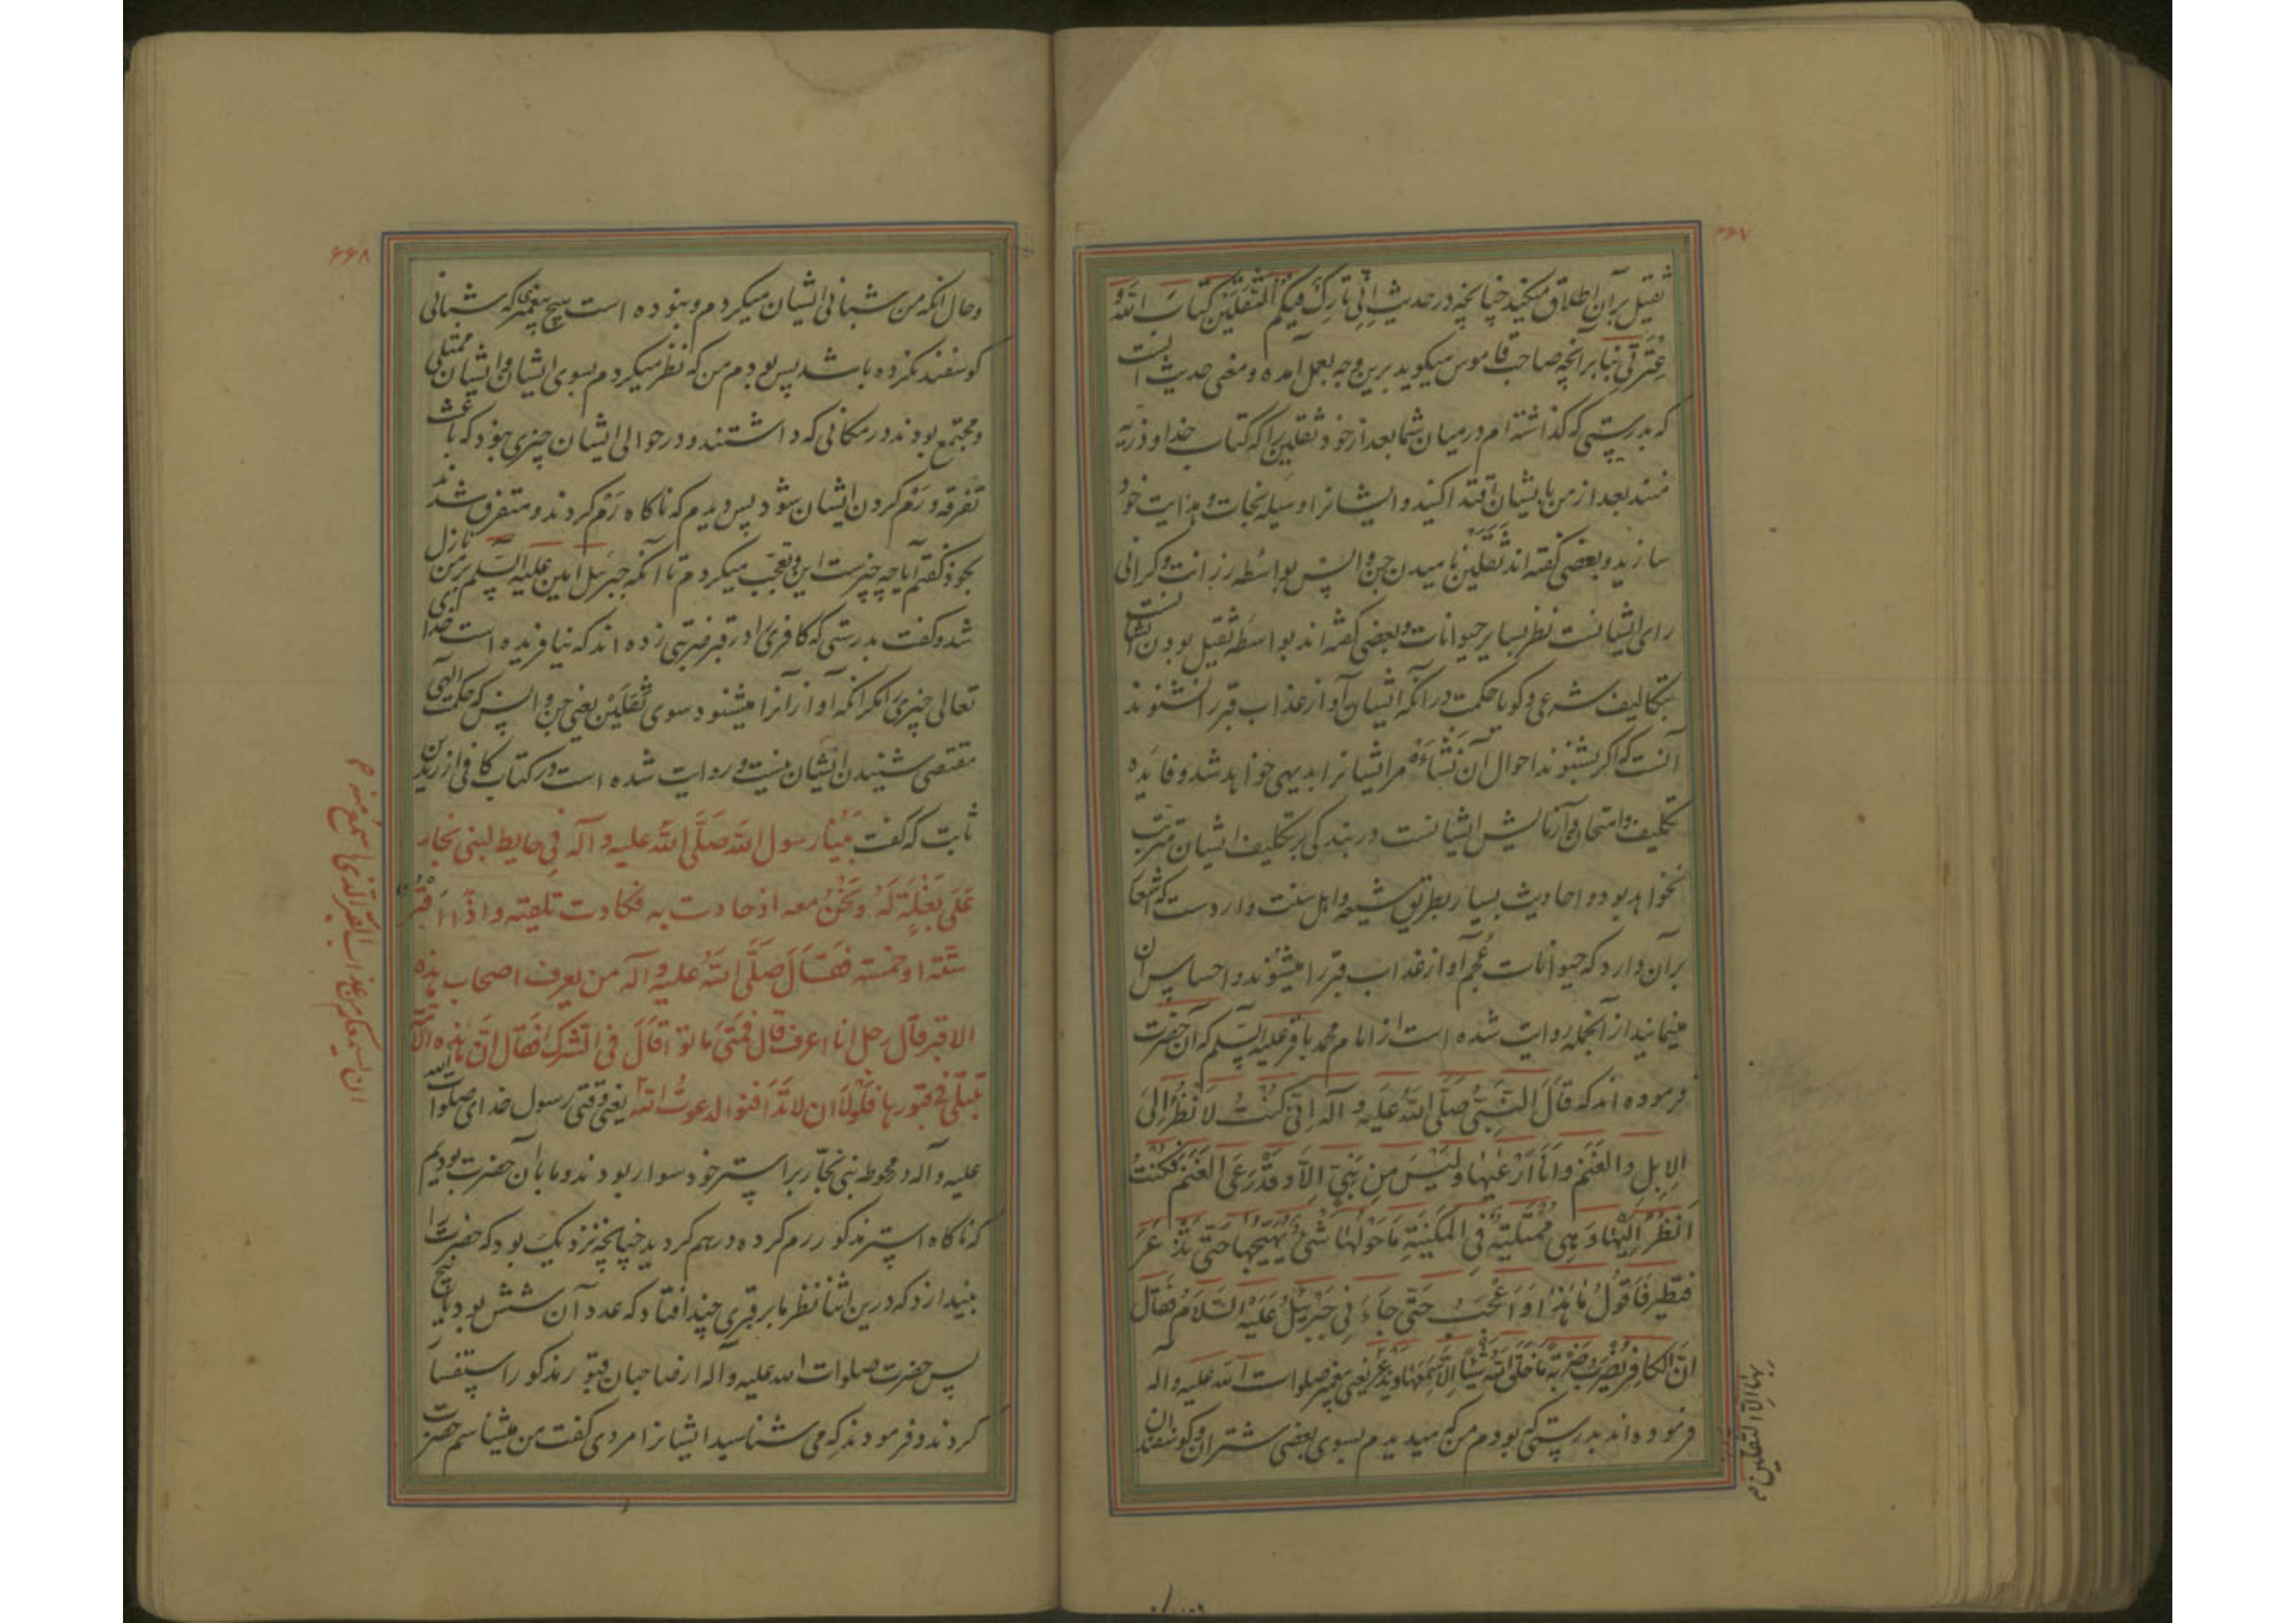 ۶۶۷
ثقیل بر آن اطلاق میکنند چنانچه در حدیث اِنّی تارِکٌ فیکُمُ الثَّقَلَیْنِ کِتابَ اللّهِ وَ
عِتْرَتی بنا بر آنچه صاحب قاموس میکوید برین وجه بعمل آمده و معنی حدیث اینست
که بدرستی که کذاشته ام در میان شما بعد از خود ثقلین را که کتاب خدا و ذریه
منند بعد از من بایشان اقتدا کنید و ایشانرا وسیله نجات و هدایت خود
سازید و بعضی کفته اند ثَقَلَیْن نامیدن جن و انس بواسطه رزانت و کرانی
رای ایشانست نظر بسایر حیوانات و بعضی کفته اند بواسطه ثقیل بودن ایشانست
بتکالیف شرعی و کویا حکمت در آنکه ایشان آواز عذاب قبر را نشنوند
آنست که اکر بشنوند احوال آن نَشْاءَه مر ایشانرا بدیهی خواهد شد و فایده
تکلیف و امتحان و آزمایش ایشانست در بندکی بر تکلیف ایشان مترتب
نخواهد بود و احادیث بسیار بطریق شیعه و اهل سنت واردست که اشعا
بر آن دارد که حیوانات عُجم آواز عذاب قبر را میشنوند و احساس آن
مینمایند از آنجمله روایت شده است از امام محمد باقر علیه السلم که آن حضرت
فرموده اند که قالَ النَّبِیُّ صَلَّی اللّهُ عَلَیهِ و آله اِنّی کُنْتُ لَاَنْظُرُ اِلیَ
الاِبِلِ وَ الغَنَمِ وَ اَنَا اَرْعٰیهٰا وَ لَیْسَ مِن نَبِیٍّ اِلّا وَ قَدْ رَعَی الغَنَمَ فَکُنْتُ
اَنْظُرُ اِلَیْهٰا وَ هِیَ مُمْتَلِیَةٌ فِی المَکینَةِ مَا حَوْلَهٰا شَیْءٌ یُهَیِّجُها حَتّی تَذْعَرَ
فَتَطیرَ فَاَقُولُ مٰا هٰذا وَ اَعْجَبُ حَتّی جاءَنِی جَبْرَئِیلُ عَلَیْهِ السَّلامُ فَقال
اِنَّ الکافِرَ یُضْرَبُ ضَرْبَةً مٰا خَلَقَ اللّهُ شَیْئاً اِلّا سَمِعَهٰا وَ یَذْعَرُ یعنی پیغمبر صلوات الله علیه و اله
فرموده اند بدرستی که بودم من که میدیدم بسوی بعضی شتران و کوسفندان
بها اِلّا الثقلین م
۶۶۸
و حال آنکه من شبانی ایشان میکردم و نبوده است هیچ پیغمبری که شبانی
کوسفند نکرده باشد پس بودم من که نظر میکردم بسوی ایشان و ایشان ممتلی
و مجتمع بودند در مکانی که داشتند و در حوالی ایشان چیزی نبود که باعث
تفرقه و رَم کردن ایشان شود پس دیدم که ناکاه رَم کردند و متفرق شدند
بخود کفتم آیا چه چیزست این و تعجب میکردم تا آنکه جبرئیل امین علیه السلم بر من نازل
شد و کفت بدرستی که کافری را در قبر ضربتی زده اند که نیافریده است خدای
تعالی چیزی را مکر آنکه آواز آنرا میشنود سوی ثَقَلَیْن یعنی جن و انس که حکمت الهی
مقتضی شنیدن ایشان نیست و روایت شده است در کتاب کافی از زید بن
ثابت که کفت بَیْنا رسول الله صَلَّی اللّه علیه و آله فی حایط لبنی نجار
عَلی بَغْلَةٍ لَهُ وَ نَحْنُ معه اذ حادت به فکادت تلقیه و اذا اَقْبُر
ستّة او خمسة فَقالَ صَلَّی اللّهُ علیه و آله من یعرف اصحاب هذه
الاقبر قال رجل انا اعرف قال فَمَتیٰ ماتوا قالَ فی الشرک فقال انَّ هٰذه الاُمّة
تبتلی فی قبورها فَلَولا ان لا تَدافنوا لدعوتُ اللّه یعنی وقتی رسول خدای صلوات الله
علیه و آله در محوطه بنی نجّار بر استر خود سوار بودند و ما با آن حضرت بودیم
که ناکاه استر مذکور رم کرده درهم کردید چنانچه نزدیک بود که حضرت را
بیندازد که درین اثنا نظر ما بر قبری چند افتاد که عدد آن شش بود یا پنج
پس حضرت صلوات الله علیه و اله از صاحبان قبور مذکور را استفسا
کردند و فرمودند که می شناسید ایشانرا مردی کفت من میشناسم حضرت
ان یسمعکم من عذاب القبر الّذی اسمع منه م